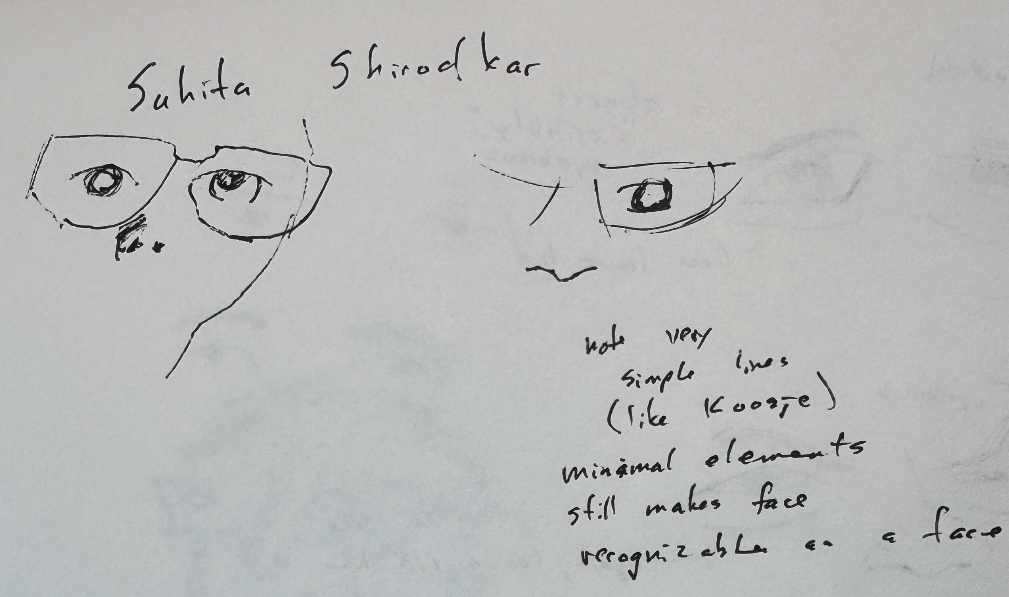 Suhita Shirodkar
note very
simple lines
(like Koosje)
minimal elements
still makes face
recognizable as a face